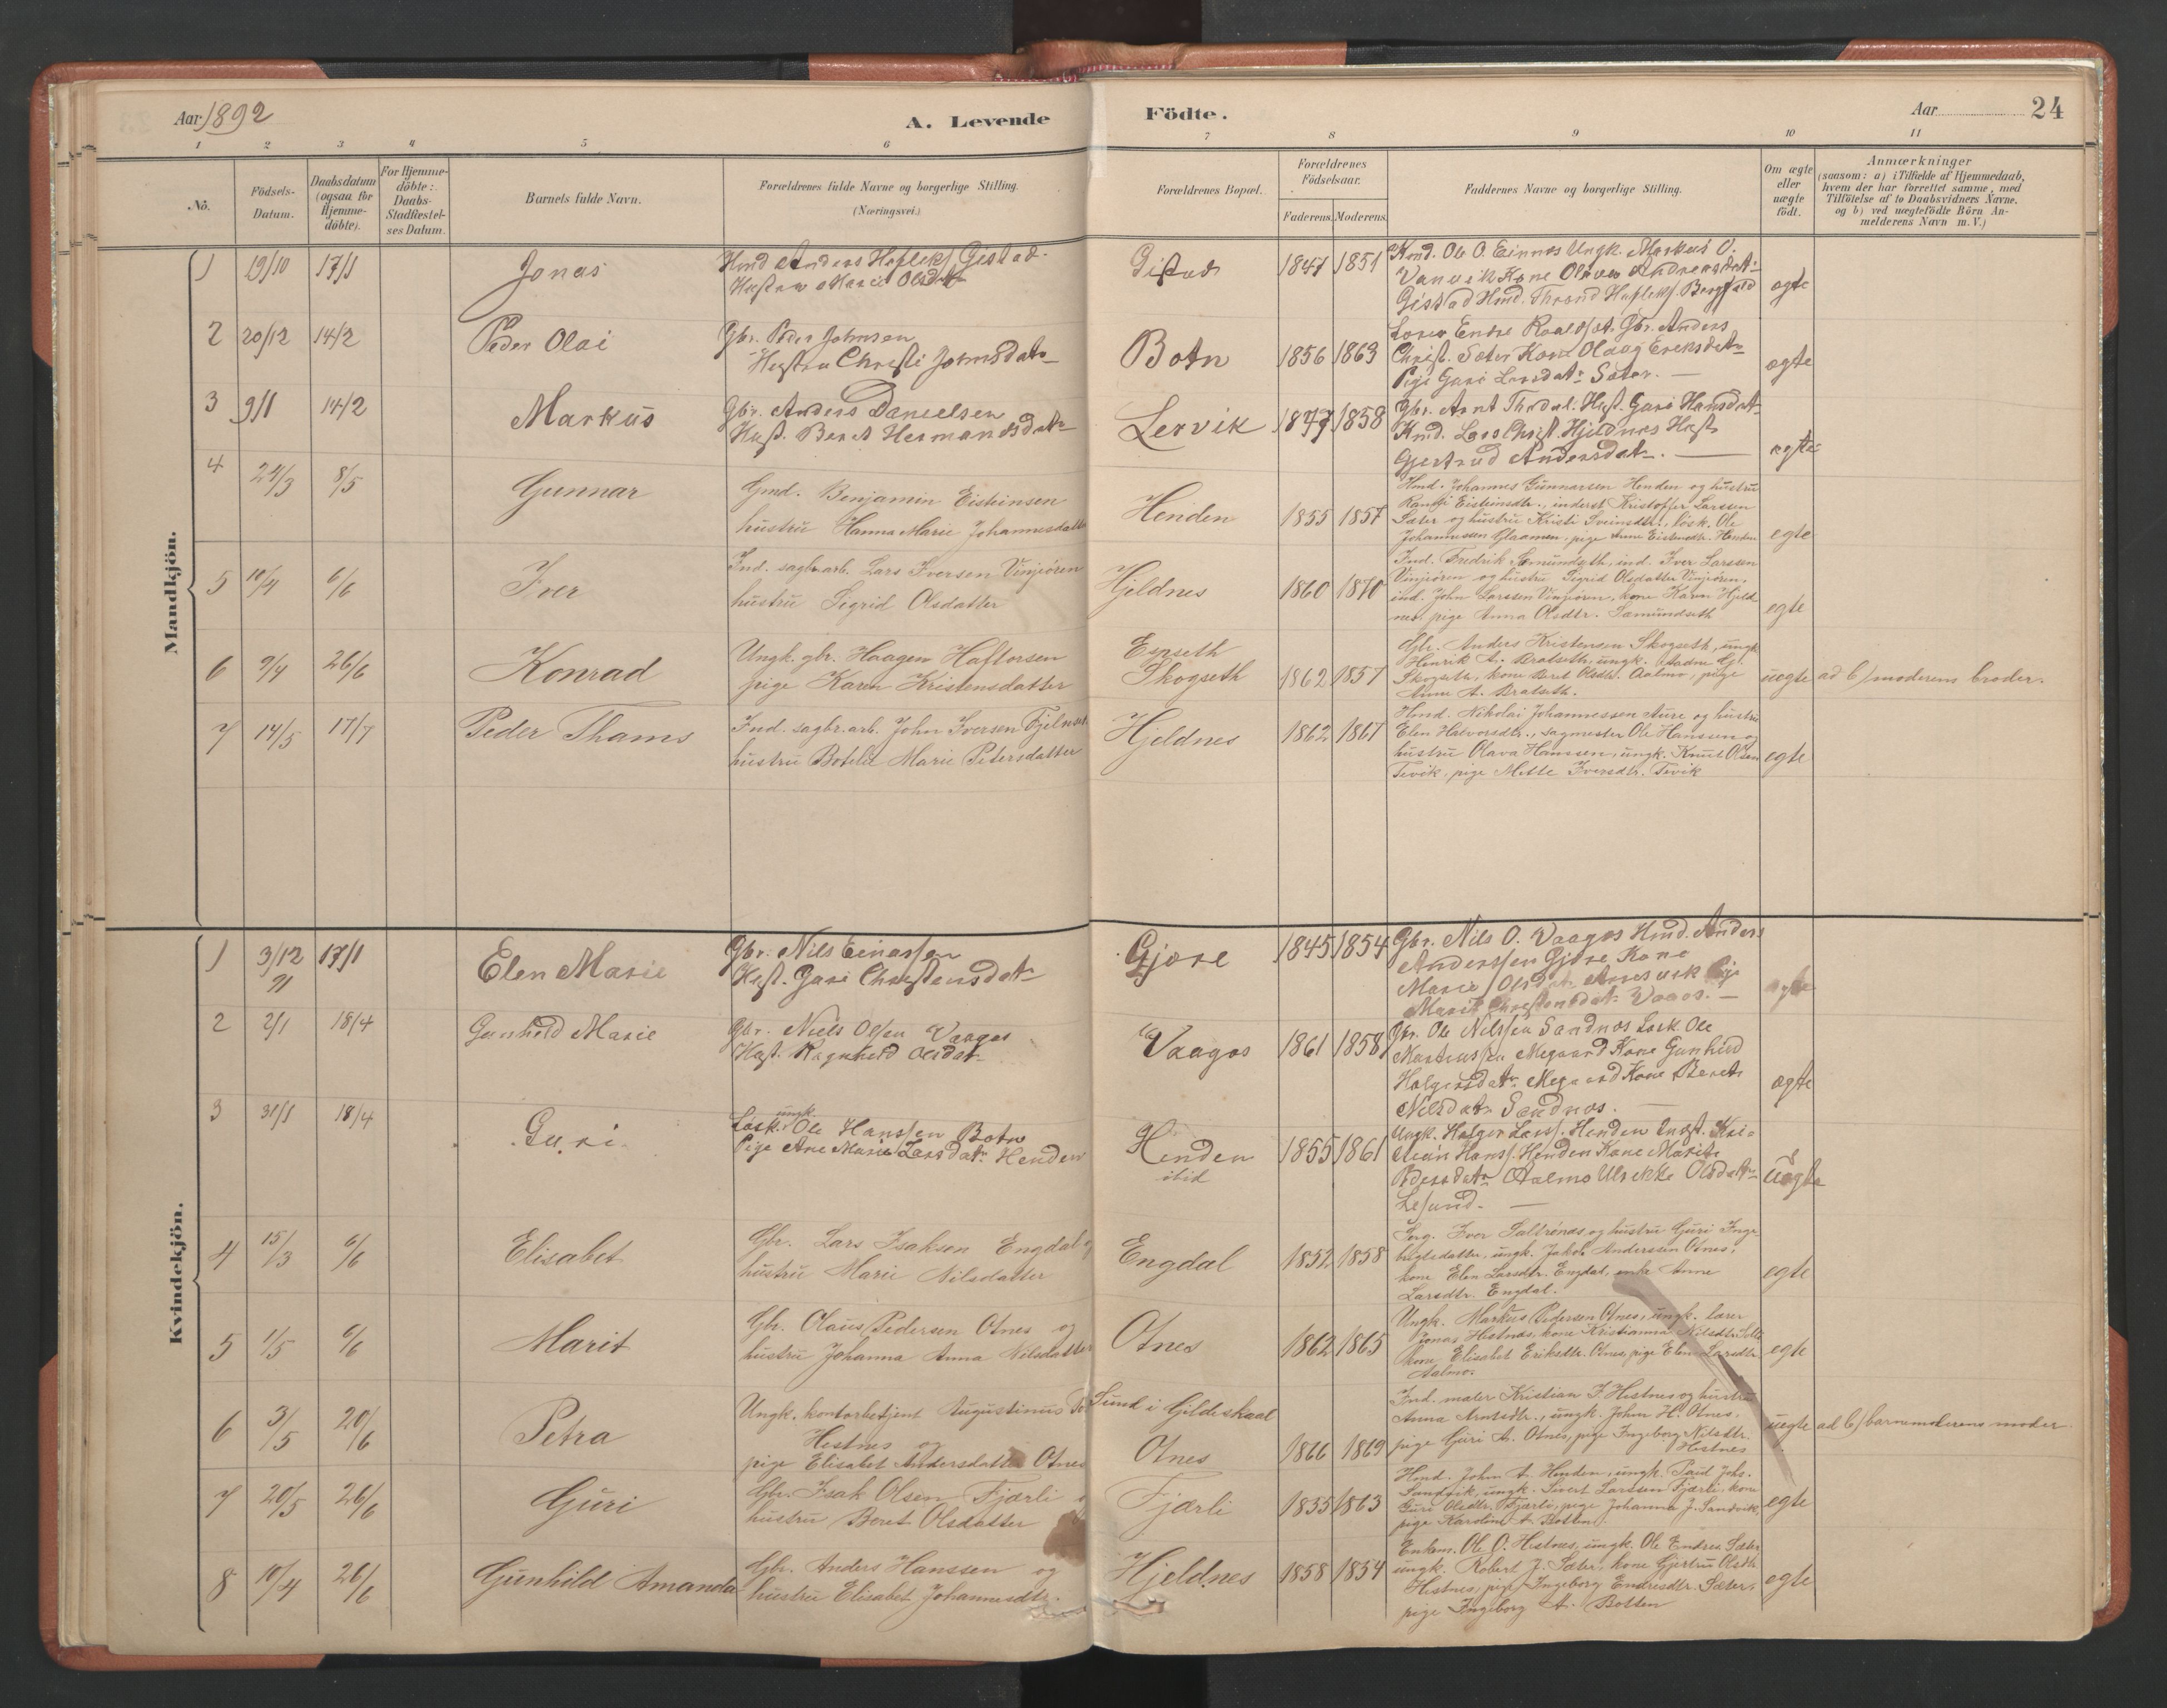 Aar 1892
A. Levende Födte.
Aar 24
1 2 3 4 5 6 7 8 9 10 11
No.
Födsels-Datum.
Daabsdatum (ogsaa for Hjemme-döbte).
For Hjemme-döbte: Daabs-Stadfæstel-ses Datum.
Barnets fulde Navn.
Forældrenes fulde Navne og borgerlige Stilling.
(Næringsvei.)
Forældrenes Bopæl.
Forældrenes Födselsaar.
Faderens. Moderens.
Faddernes Navne og borgerlige Stilling.
Om ægte eller uægte födt.
Anmærkninger
(saasom: a) i Tilfælde af Hjemmedaab,
hvem der har forrettet samme, med
Tilföielse af to Daabsvidners Navne,
og b) ved uægtefödte Börn An-
melderens Navn m. V.)
Mandkjön.
1 19/10 17/1 Jonas
Hmd Anders Gistad
Hustru Marit Olsdatr
Gistad 1847 1851
Kmd. Ole O. Einnes Ungk. Markus O.
Vanvik Kone Andreasdatr
Gistad Hmd. Thrond
ægte
2 20/12 14/2 Peder Olai
Gbr. Peder Johnsen
Hustru Christi Johnsdatr
Botn 1856 1863
Endre Gbr. Anders
Christ. Sæter Kone Olaug Eriksdatr
Pige Guri Larsdatr Sæter. —
ægte
3 9/1 14/2 Markus
Gbr. Anders Danielsen
Hust. Beret Hermandsdatr
Lervik 1847 1858
Gbr. Arnt Hust. Guri Hansdatr
Kmd. Lars Christ. Hjeldnes Hust
Gjertrud Andersdatr. —
ægte
4 24/3 8/5 Gunnar
Gmd. Benjamin Eisteinsen
hustru Hanna Marie Johannesdatter
Henden 1855 1857
Hmd. Johannes Gunnarsen Henden og hustru
Eisteinsdtr., inderst Kristoffer Larssen
Sæter og hustru Kristi Sveinsdtr., lösk. Ole
Johannessen Glaamen, pige Anne Eisteinsdtr. Henden
egte
5 10/4 6/6 Iver
Ind. sagbr.arb. Lars Iversen Vinjeören
hustru Sigrid Olsdatter
Hjeldnes 1860 1870
Ind. Fredrik Sæmundseth, ind. Iver Larssen
Vinjeören og hustru Sigrid Olsdatter Vinjeören,
ind. John Larssen Vinjeören, kone Karen Hjeld-
nes, pige Anna Olsdtr. Sæmundseth
egte
6 9/4 26/6 Konrad
Ungk. gbr. Haagen Haftorsen
pige Karen Kristensdatter
Engseth
Skogseth 1862 1857
Gbr. Anders Kristensen Skogseth, ungk.
Henrik A. Bratseth, ungk.
Skogseth, kone Beret Olsdtr. Aalmo, pige
Anne A. Bratseth.
uegte ad b) moderens broder.
7 14/5 17/7 Peder Thams
Ind. sagbr.arb. John Iversen
hustru Botilde Marie Petersdatter
Hjeldnes 1862 1867
Hmd. Nikolai Johannessen Aure og hustru
Elen Halvorsdtr., sagmester Ole Hanssen og
hustru Olava Hanssen, ungk. Knut Olsen
Tevik, pige Mette Iversdtr. Tevik
egte
Kvindekjön.
1 3/12 91 17/1 Elen Marie
Gbr. Nils Einarssen
Hust. Guri Christensdatr
Gjöre 1845 1854
Gbr. Nils O. Vaagos Hmd. Anders
Anderssen Gjöre, Kone
Marie Olsdatr Pige
Marit Christensdatr Vaagos. —
ægte
2 2/1 18/4 Gunhild Marie
Gbr. Niels Olssen Vaagos
Hust. Ragnhild Olsdatr
Vaagos 1861 1858
Gbr. Ole Nilssen Sandnes Lösk Ole
Martinussen Megaard Kone Gunhild
Holgersdatr Megaard Kone Beret
Nilsdatr Sandnes. —
ægte
3 31/1 18/4 Guri
ungk.
Lösk. Ole Hanssen Botn
Pige Ane Marie Larsdatr Henden
Henden
ibid
1855 1861
Ungk. Holger Larss. Henden Inst. Kri-
stian Hanss. Henden Kone Marit
Pedersdatr Aalmo Ulrikke Olsdatr
Lesund. —
uægte
4 15/3 6/6 Elisabet
Gbr. Lars Isaksen Engdal og
hustru Marie Nilsdatter
Engdal 1852 1858
Serg. Iver Saltrönes og hustru Guri Inge-
brigtsdatter, ungk. Jakob Anderssen Otnes,
kone Elen Larsdtr. Engdal, enke Anne
Larsdtr. Engdal.
egte
5 1/5 6/6 Marit
Gbr. Olaus Pedersen Otnes og
hustru Johanna Anna Nilsdatter
Otnes 1862 1865
Ungk. Markus Pedersen Otnes, ungk. lærer
Jonas Hestnes, kone Kristianna Nilsdtr.
kone Elisabet Eriksdtr. Otnes, pige Elen Larsdtr.
Aalmo.
egte
6 3/5 20/6 Petra
Ungk. kontorbetjent Augustinus
Hestnes og
pige Elisabet Andersdatter Otnes
Sund i Gildeskaal
Otnes 1866 1869
Ind. maler Kristian J. Hestnes og hustru
Anna Arntsdtr., ungk. John H. Otnes,
pige Guri A. Otnes, pige Ingeborg Nilsdtr.
Hestnes
uegte ad b) barnemoderens moder.
7 20/5 26/6 Guri
Gbr. Isak Olsen Fjærli
hustru Beret Olsdatter
Fjærli 1835 1863
Hmd. John A. Henden, ungk. Paul Johs.
Sandvik, ungk. Sivert Larssen Fjærli, kone
Guri Olsdtr. Fjærli, pige Johanna J. Sandvik,
pige Karoline A. Botten.
egte
8 10/4 26/6 Gunhild Amanda
Gbr. Anders Hanssen og
hustru Elisabet Johannesdtr.
Hjeldnes 1858 1854
Enkem. Ole O. Hestnes, ungk. Ole Endresen Sæter
ungk. Robert J. Sæter, kone Gjertru Olsdtr
Hestnes, pige Ingeborg Endresdtr. Sæter,
pige Ingeborg A. Botten
egte